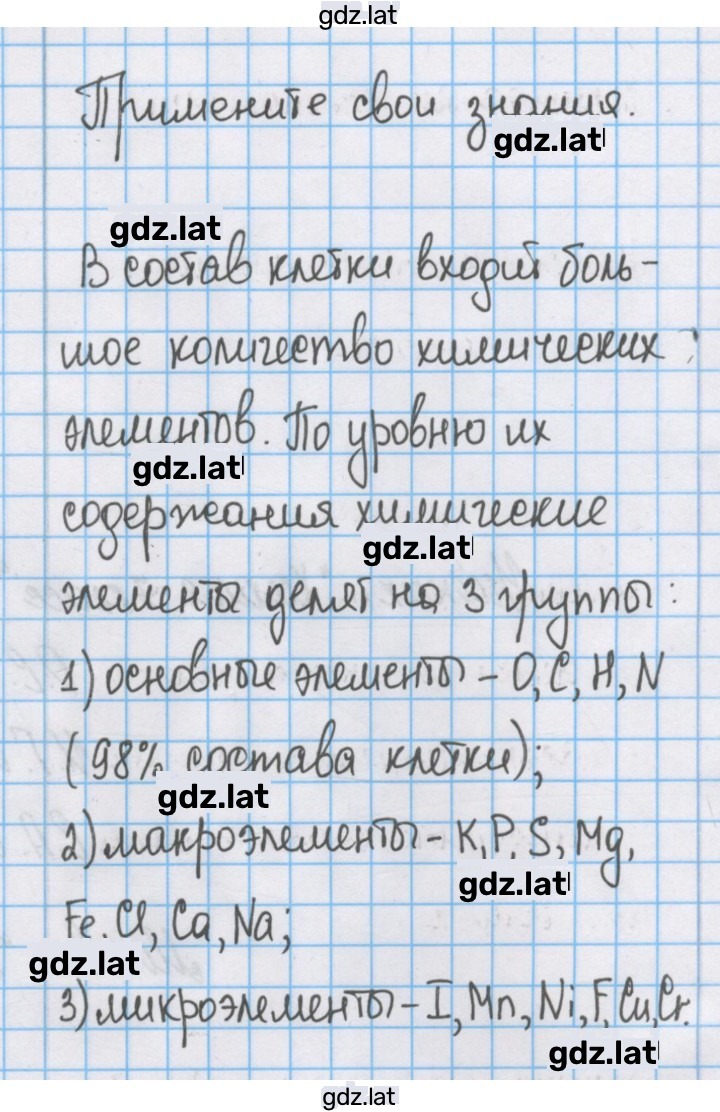 gdz.lat
Примените свои знания.
gdz.lat
gdz.lat
В состав клетки входит боль-
шое количество химических
элементов. По уровню их
gdz.lat
содержания химические
gdz.lat
элементы делят на 3 группы:
1) основные элементы – O, C, H, N
(98% состава клетки);
gdz.lat
2) макроэлементы – K, P, S, Mg,
gdz.lat
Fe, Cl, Ca, Na;
gdz.lat
3) микроэлементы – I, Mn, Ni, F, Cu, Cr.
gdz.lat
gdz.lat